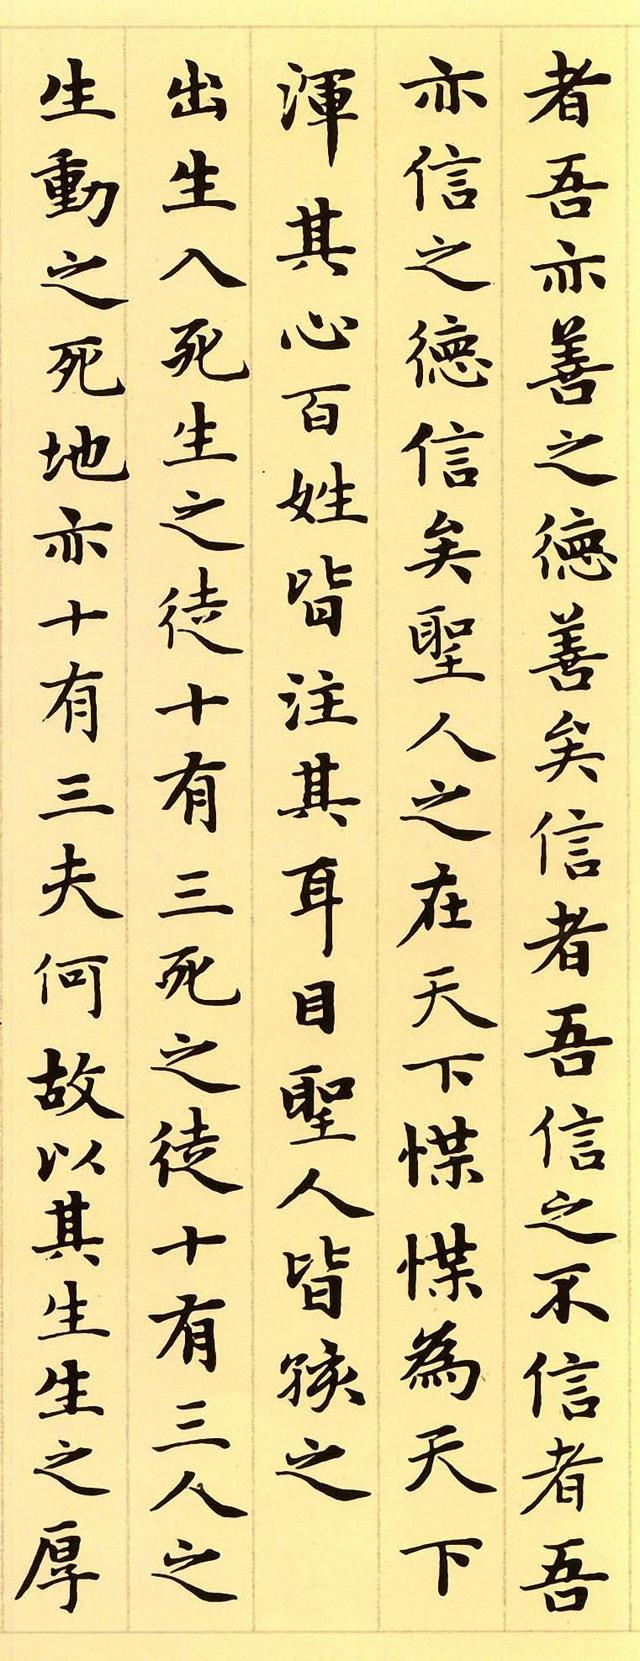 者吾亦善之德善矣信者吾信之不信者吾
亦信之德信矣聖人之在天下惵惵為天下
渾其心百姓皆注其耳目聖人皆孩之
出生入死生之徒十有三死之徒十有三人之
生動之死地亦十有三夫何故以其生生之厚